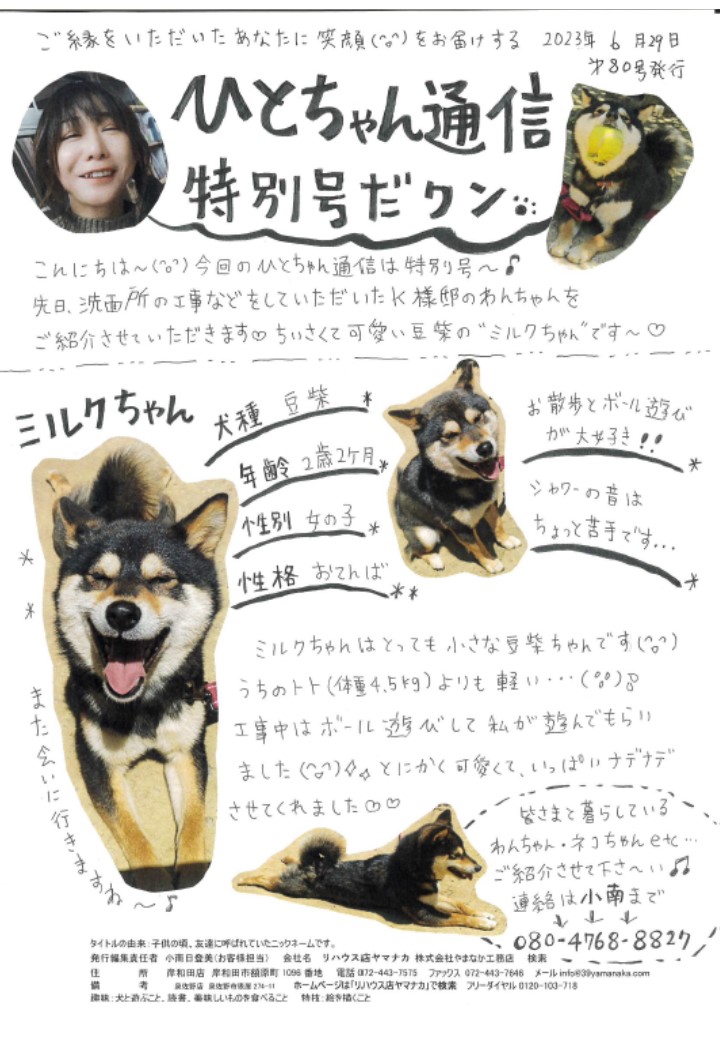 ご縁をいただいたあなたに笑顔(^o^)をお届けする 2023年6月29日
第80号発行
ひとちゃん通信
特別号だワン
こんにちは～(^o^)今回のひとちゃん通信は特別号～♪
先日、洗面所の工事などをしていただいたK様邸のわんちゃんを
ご紹介させていただきます♡ちいさくて可愛い豆柴の"ミルクちゃん"です～♡
ミルクちゃん
犬種 豆柴
年齢 2歳2ヶ月
性別 女の子
性格 おてんば
お散歩とボール遊び
が大好き!!
シャワーの音は
ちょっと苦手です...
ミルクちゃんはとっても小さな豆柴ちゃんです(^o^)
うちのトト(体重4.5kg)よりも軽い…(°o°)
工事中はボール遊びして私が遊んでもらい
ました(^o^)とにかく可愛くて、いっぱいナデナデ
させてくれました♡♡
また会いに行きますね～♪
皆さまと暮らしている
わんちゃん・ネコちゃんetc…
ご紹介させて下さ～い♫
連絡は小南まで
↓ ↓ ↓
080-4768-8827
タイトルの由来：子供の頃、友達に呼ばれていたニックネームです。
発行編集責任者 小南日登美(お客様担当) 会社名 リハウス店ヤマナカ 株式会社やまなか工務店 検索
住 所 岸和田店 岸和田市額原町1096番地 電話 072-443-7575 ファックス 072-443-7646 メール info@39yamanaka.com
備 考 泉佐野店 泉佐野市俵屋274-11 ホームページは「リハウス店ヤマナカ」で検索 フリーダイヤル 0120-103-718
趣味：犬と遊ぶこと、読書、美味しいものを食べること 特技：絵を描くこと